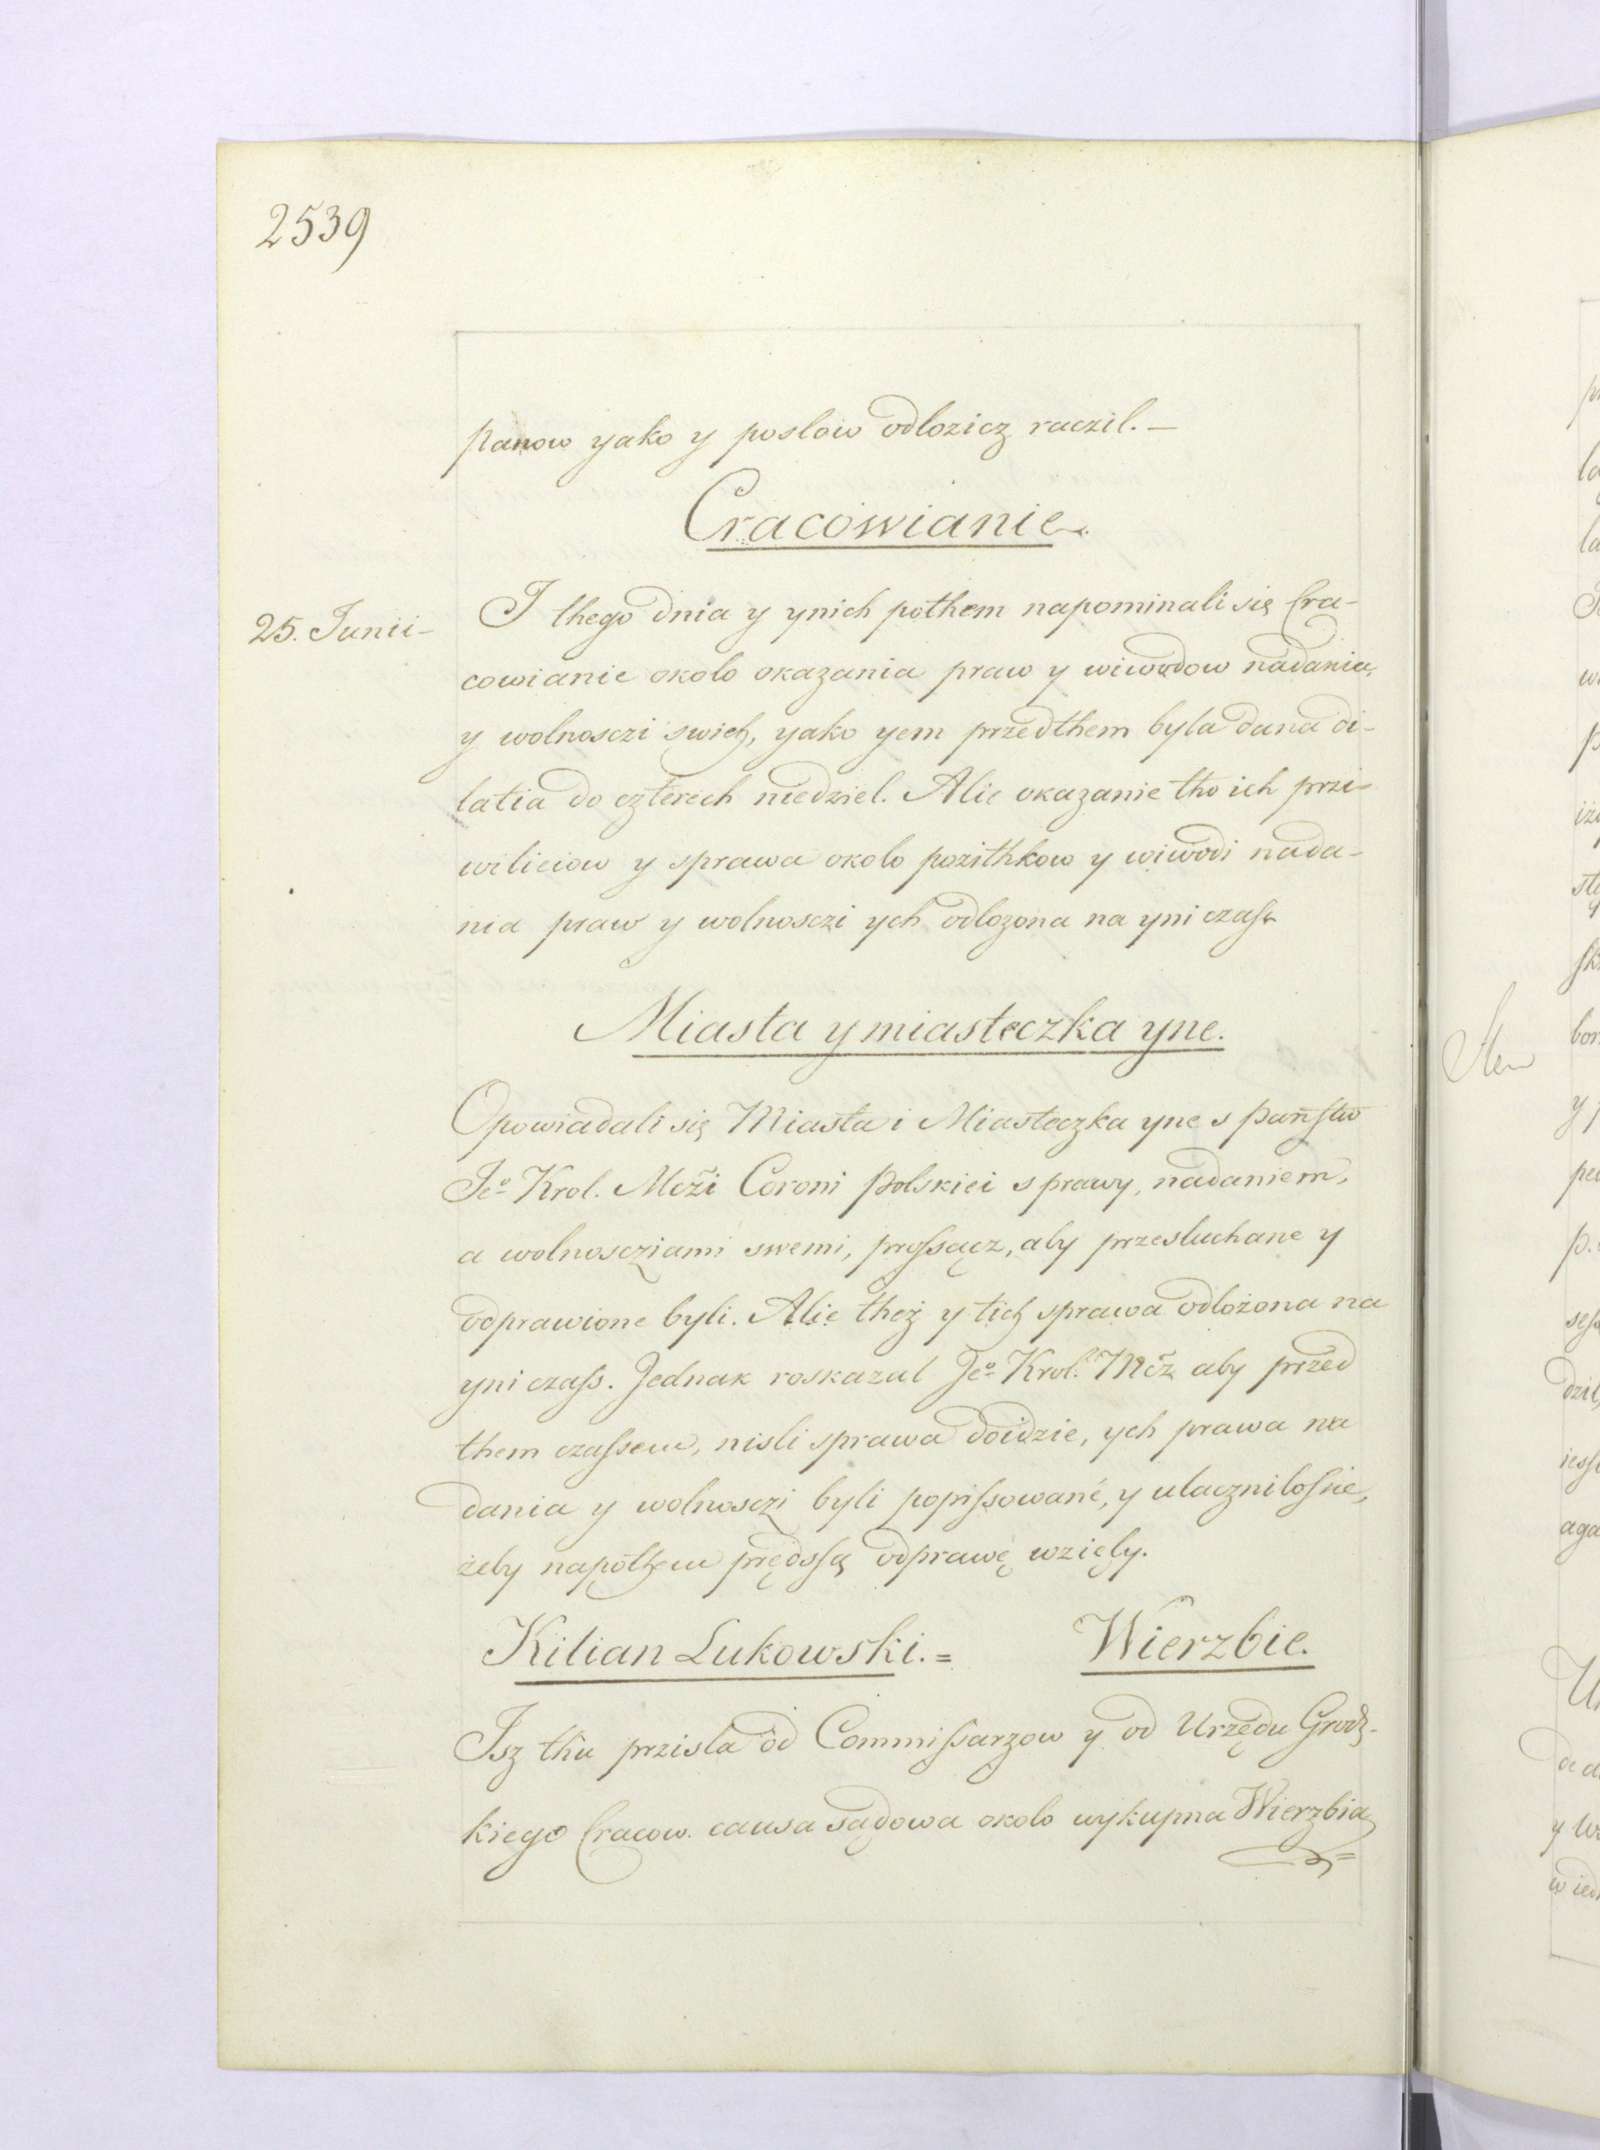 2539
panow yako y posłow odłozicz raczil. —
Cracowianie.
25. Junii –
I thego dnia y ynich pothem napominali się Cra-
cowianie około okazania praw y wiwodow nadania,
y wolnosczi swich, yako yem przedthem była dana di-
latia do czterech niedziel. Alie okazanie tho ich przi-
wiliciow y sprawa około pozithkow y wiwodi nada-
nia praw y wolnosczi ych odlozona na yni czass
Miasta y miasteczka yne.
Opowiadali się Miasta i Miasteczka yne s państw
Jeº Krol. Mczi Coroni Polskiei s prawy, nadaniem,
a wolnoscziami swemi, prossącz, aby przesluchane y
odprawione byli. Alie theż y tich sprawa odłożona na
yni czass. Jednak roskazal Jeº Krol. Mcz aby przed
them czassem, nisli sprawa doidzie, ych prawa na
dania y wolnosczi byli popissowane, y ulacznilossie,
żeby napothem prędssą odprawę wzięły.
Kilian Lukowski. =
Wierzbie.
Isz thu przisla od Commissarzow y od Urzędu Grodz-
kiego Cracow. causa sądowa około wykupna Wierzbia
Sten